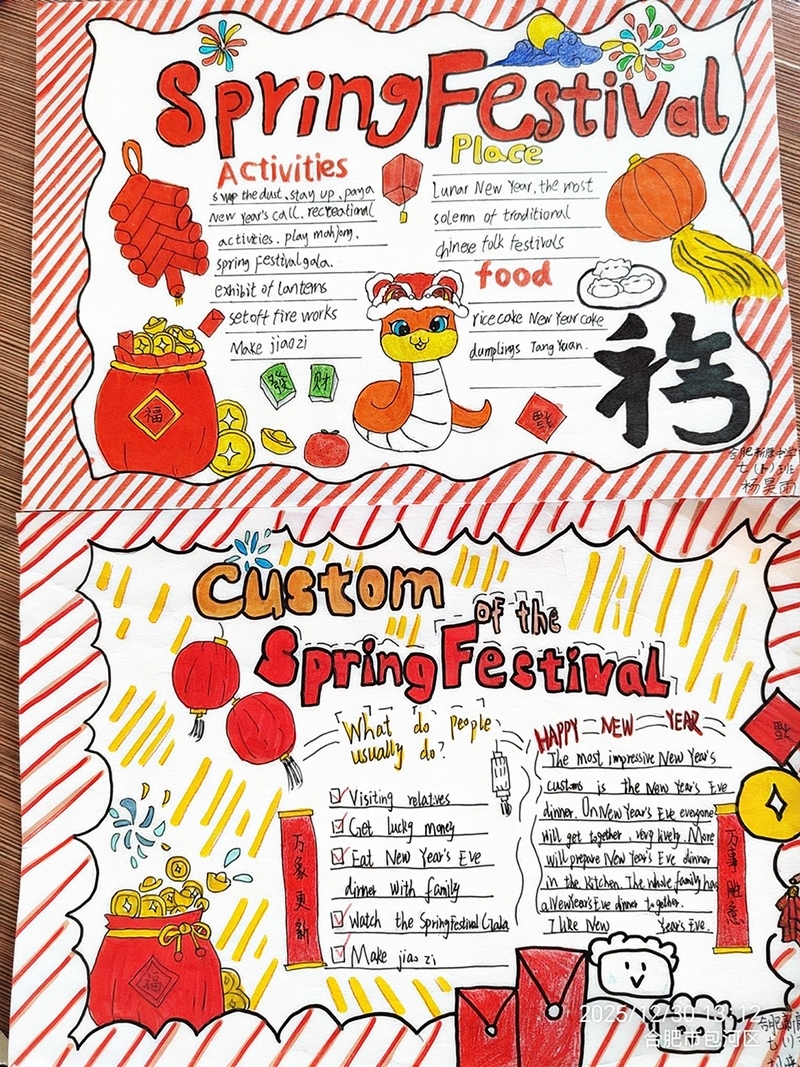 Spring Festival
Activities
swap the dust. stay up. paya
New year's call. recreational
activities. play mahjong.
spring festival gala.
exhibit of lantems
setoff fire works
Make jiaozi
Place
Lunar New Year, the most
solemn of traditional
chinese folk festivals
food
rice cake New Year cake
dumplings TangYuan.
福
發
财
福
福
合肥新康中学
七(1)班
杨昊雨
Custom
of the
Spring Festival
What do people
usually do?
Visiting relatives
Get lucky money
Eat New Year's Eve
dinner with family
Watch the Spring Festival Gala
Make jiao zi
HAPPY NEW YEAR
The most impressive New Year's
customs is the New Year's Eve
dinner. On New Year's Eve everyone
will get together very lively. More
will prepare New Year's Eve dinner
in the kitchen. The whole family has
a NewYear's Eve dinner together.
I like New Year's Eve.
万象更新
万事胜意
福
福
2025/12/30 13:12
合肥市包河区